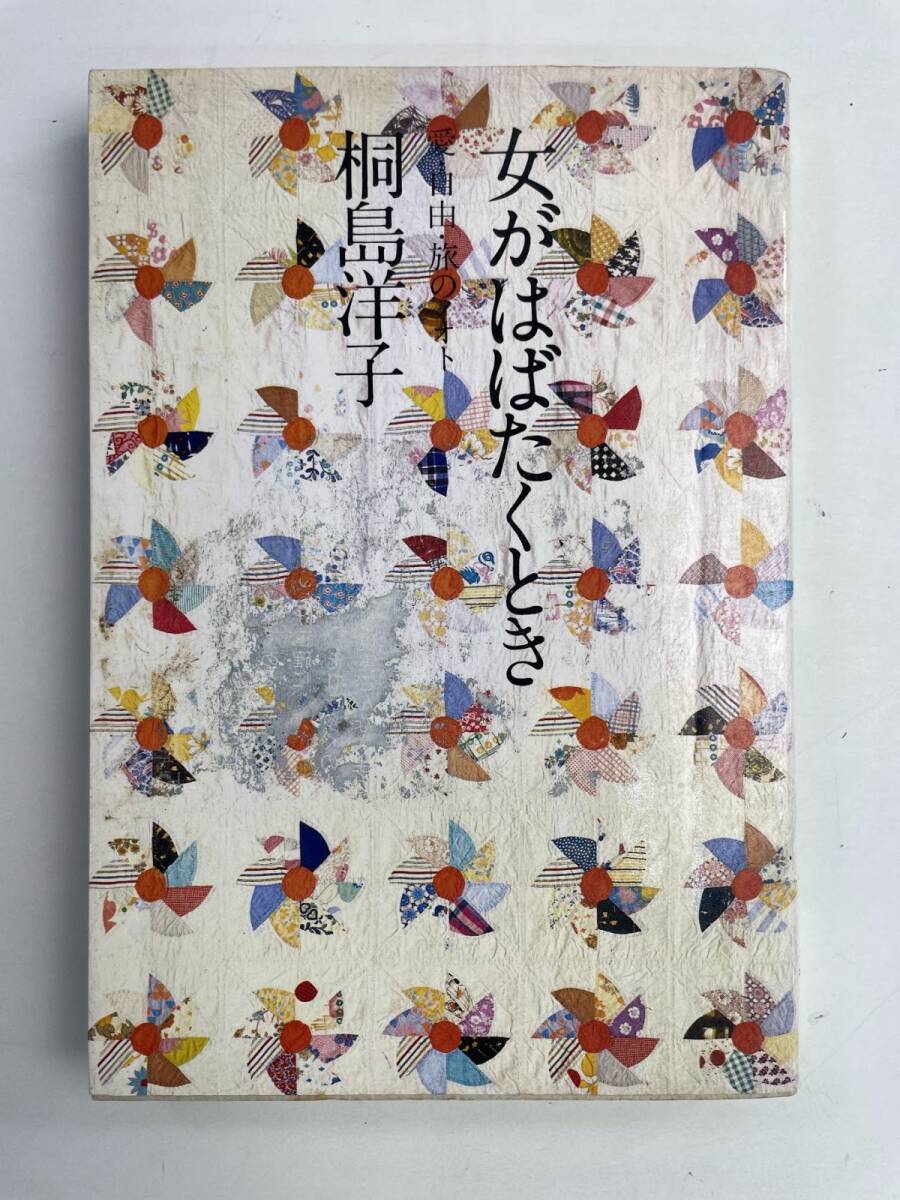 女がはばたくとき
愛・自由・旅のノオト
桐島洋子